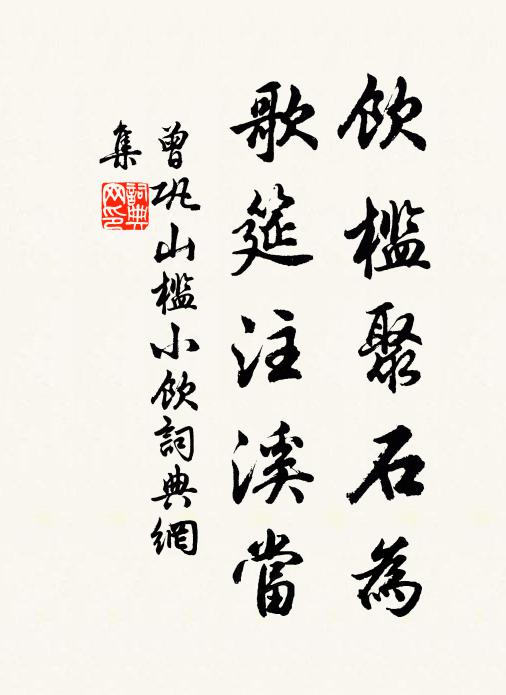 飲檻聚石為
歌筵注溪當
曾鞏山檻小飲詞典網
集
詞典
网印